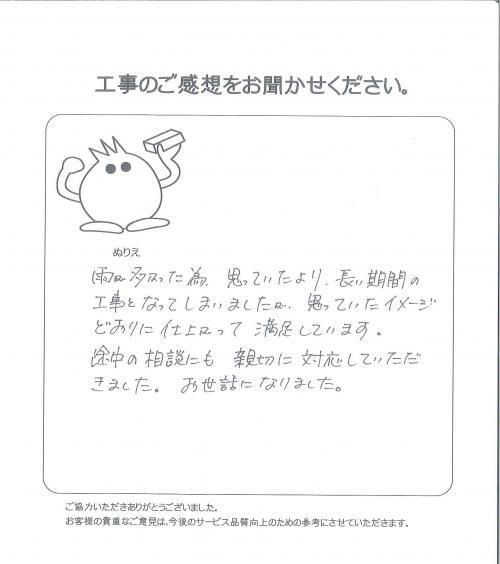 工事のご感想をお聞かせください。
ぬりえ
雨が多かった為、思っていたより、長い期間の
工事となってしまいましたが、思っていたイメージ
どおりに仕上がって満足しています。
途中の相談にも親切に対応していただ
きました。お世話になりました。
ご協力いただきありがとうございました。
お客様の貴重なご意見は、今後のサービス品質向上のための参考にさせていただきます。